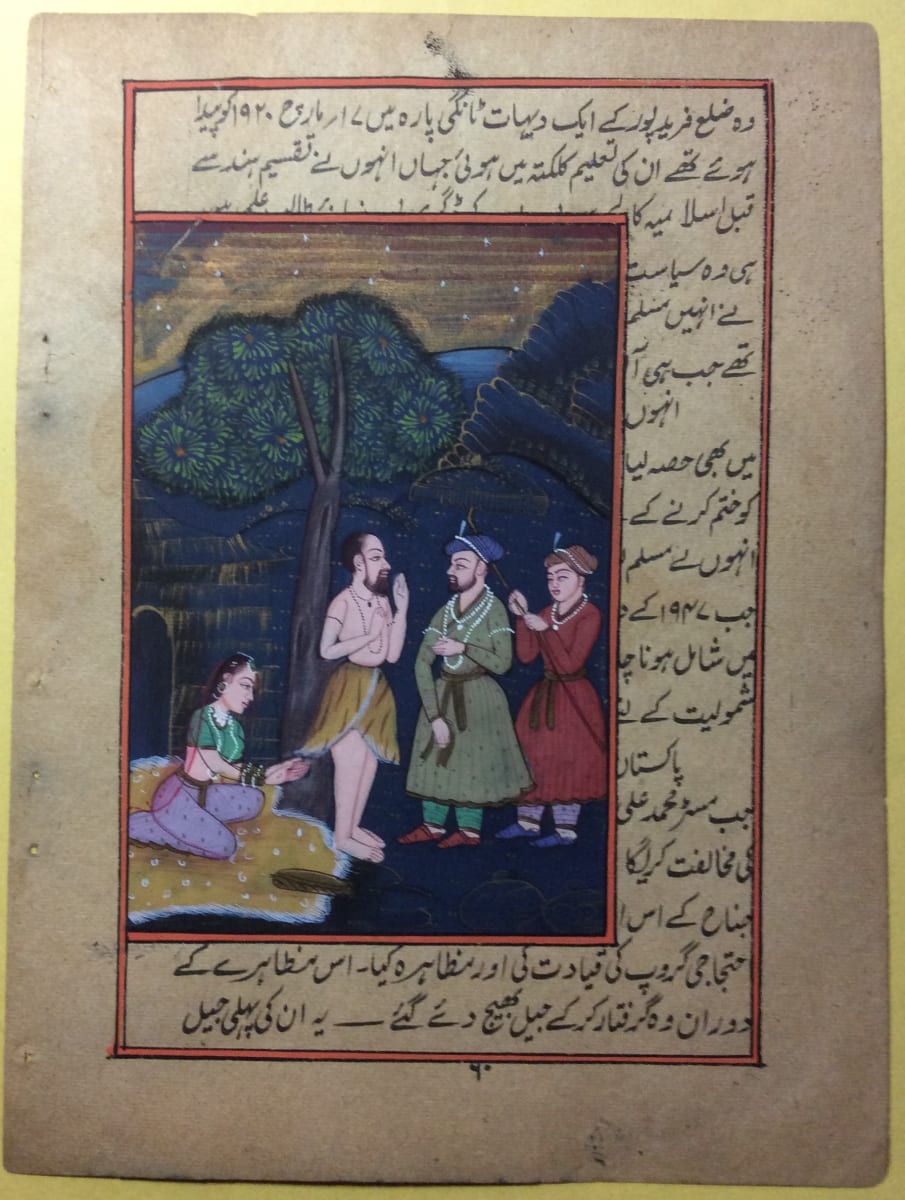 وہ ضلع فرید پور کے ایک دیہات ٹانگی پارہ میں ۱۷ار مارچ ۱۹۲۰ کو پیدا
ہوئے تھے ان کی تعلیم کلکتہ میں ہوئی جہاں انہوں نے تقسیم ہند سے
قبل اسلامیہ کا
ہی وہ سیاست
نے انہیں مسلم
تھے جب ہی آ
انہوں
میں بھی حصہ لیا
کو ختم کرنے کے
انہوں نے مسلم
جب ۱۹۴۷ کے
میں شامل ہونا چا
شمولیت کے لئے
پاکستان
جب مسٹر محمد علی
کی مخالفت کر
جناح کے اس ا
احتجاجی گروپ کی قیادت کی اور مظاہرہ کیا۔ اس مظاہرے کے
دوران وہ گرفتار کر کے جیل بھیج دئے گئے — یہ ان کی پہلی جیل
۶۰